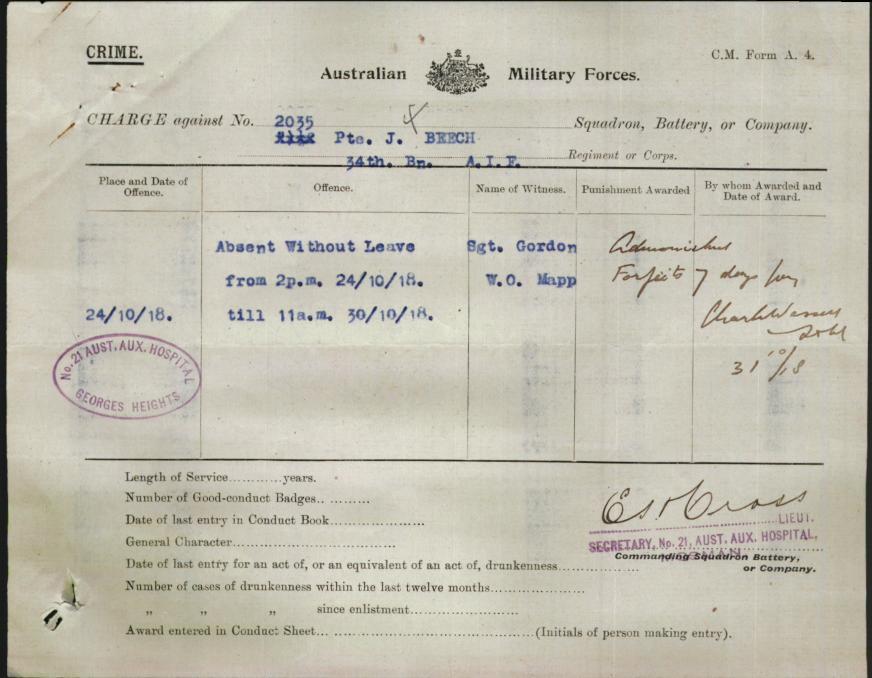 CRIME.
C.M. Form A. 4.
Australian Military Forces.
CHARGE against No. 2035 Squadron, Battery, or Company.
Pte. J. BEECH
34th. Bn. A.I.F. Regiment or Corps.
Place and Date of Offence. Offence. Name of Witness. Punishment Awarded By whom Awarded and Date of Award.
Absent Without Leave Sgt. Gordon Admonished
from 2p.m. 24/10/18. W.O. Mapp Forfeits 7 days pay
24/10/18. till 11a.m. 30/10/18.
31/10/18
No. 21 AUST. AUX. HOSPITAL
GEORGES HEIGHTS
Length of Service............years.
Number of Good-conduct Badges.. ..........
Date of last entry in Conduct Book........................
General Character..........................................
Date of last entry for an act of, or an equivalent of an act of, drunkenness.....................
Number of cases of drunkenness within the last twelve months........................
„ „ „ since enlistment...........................
Award entered in Conduct Sheet... ..................................................(Initials of person making entry).
Cross
LIEUT.
SECRETARY, No. 21, AUST. AUX. HOSPITAL,
Commanding Squadron Battery,
or Company.